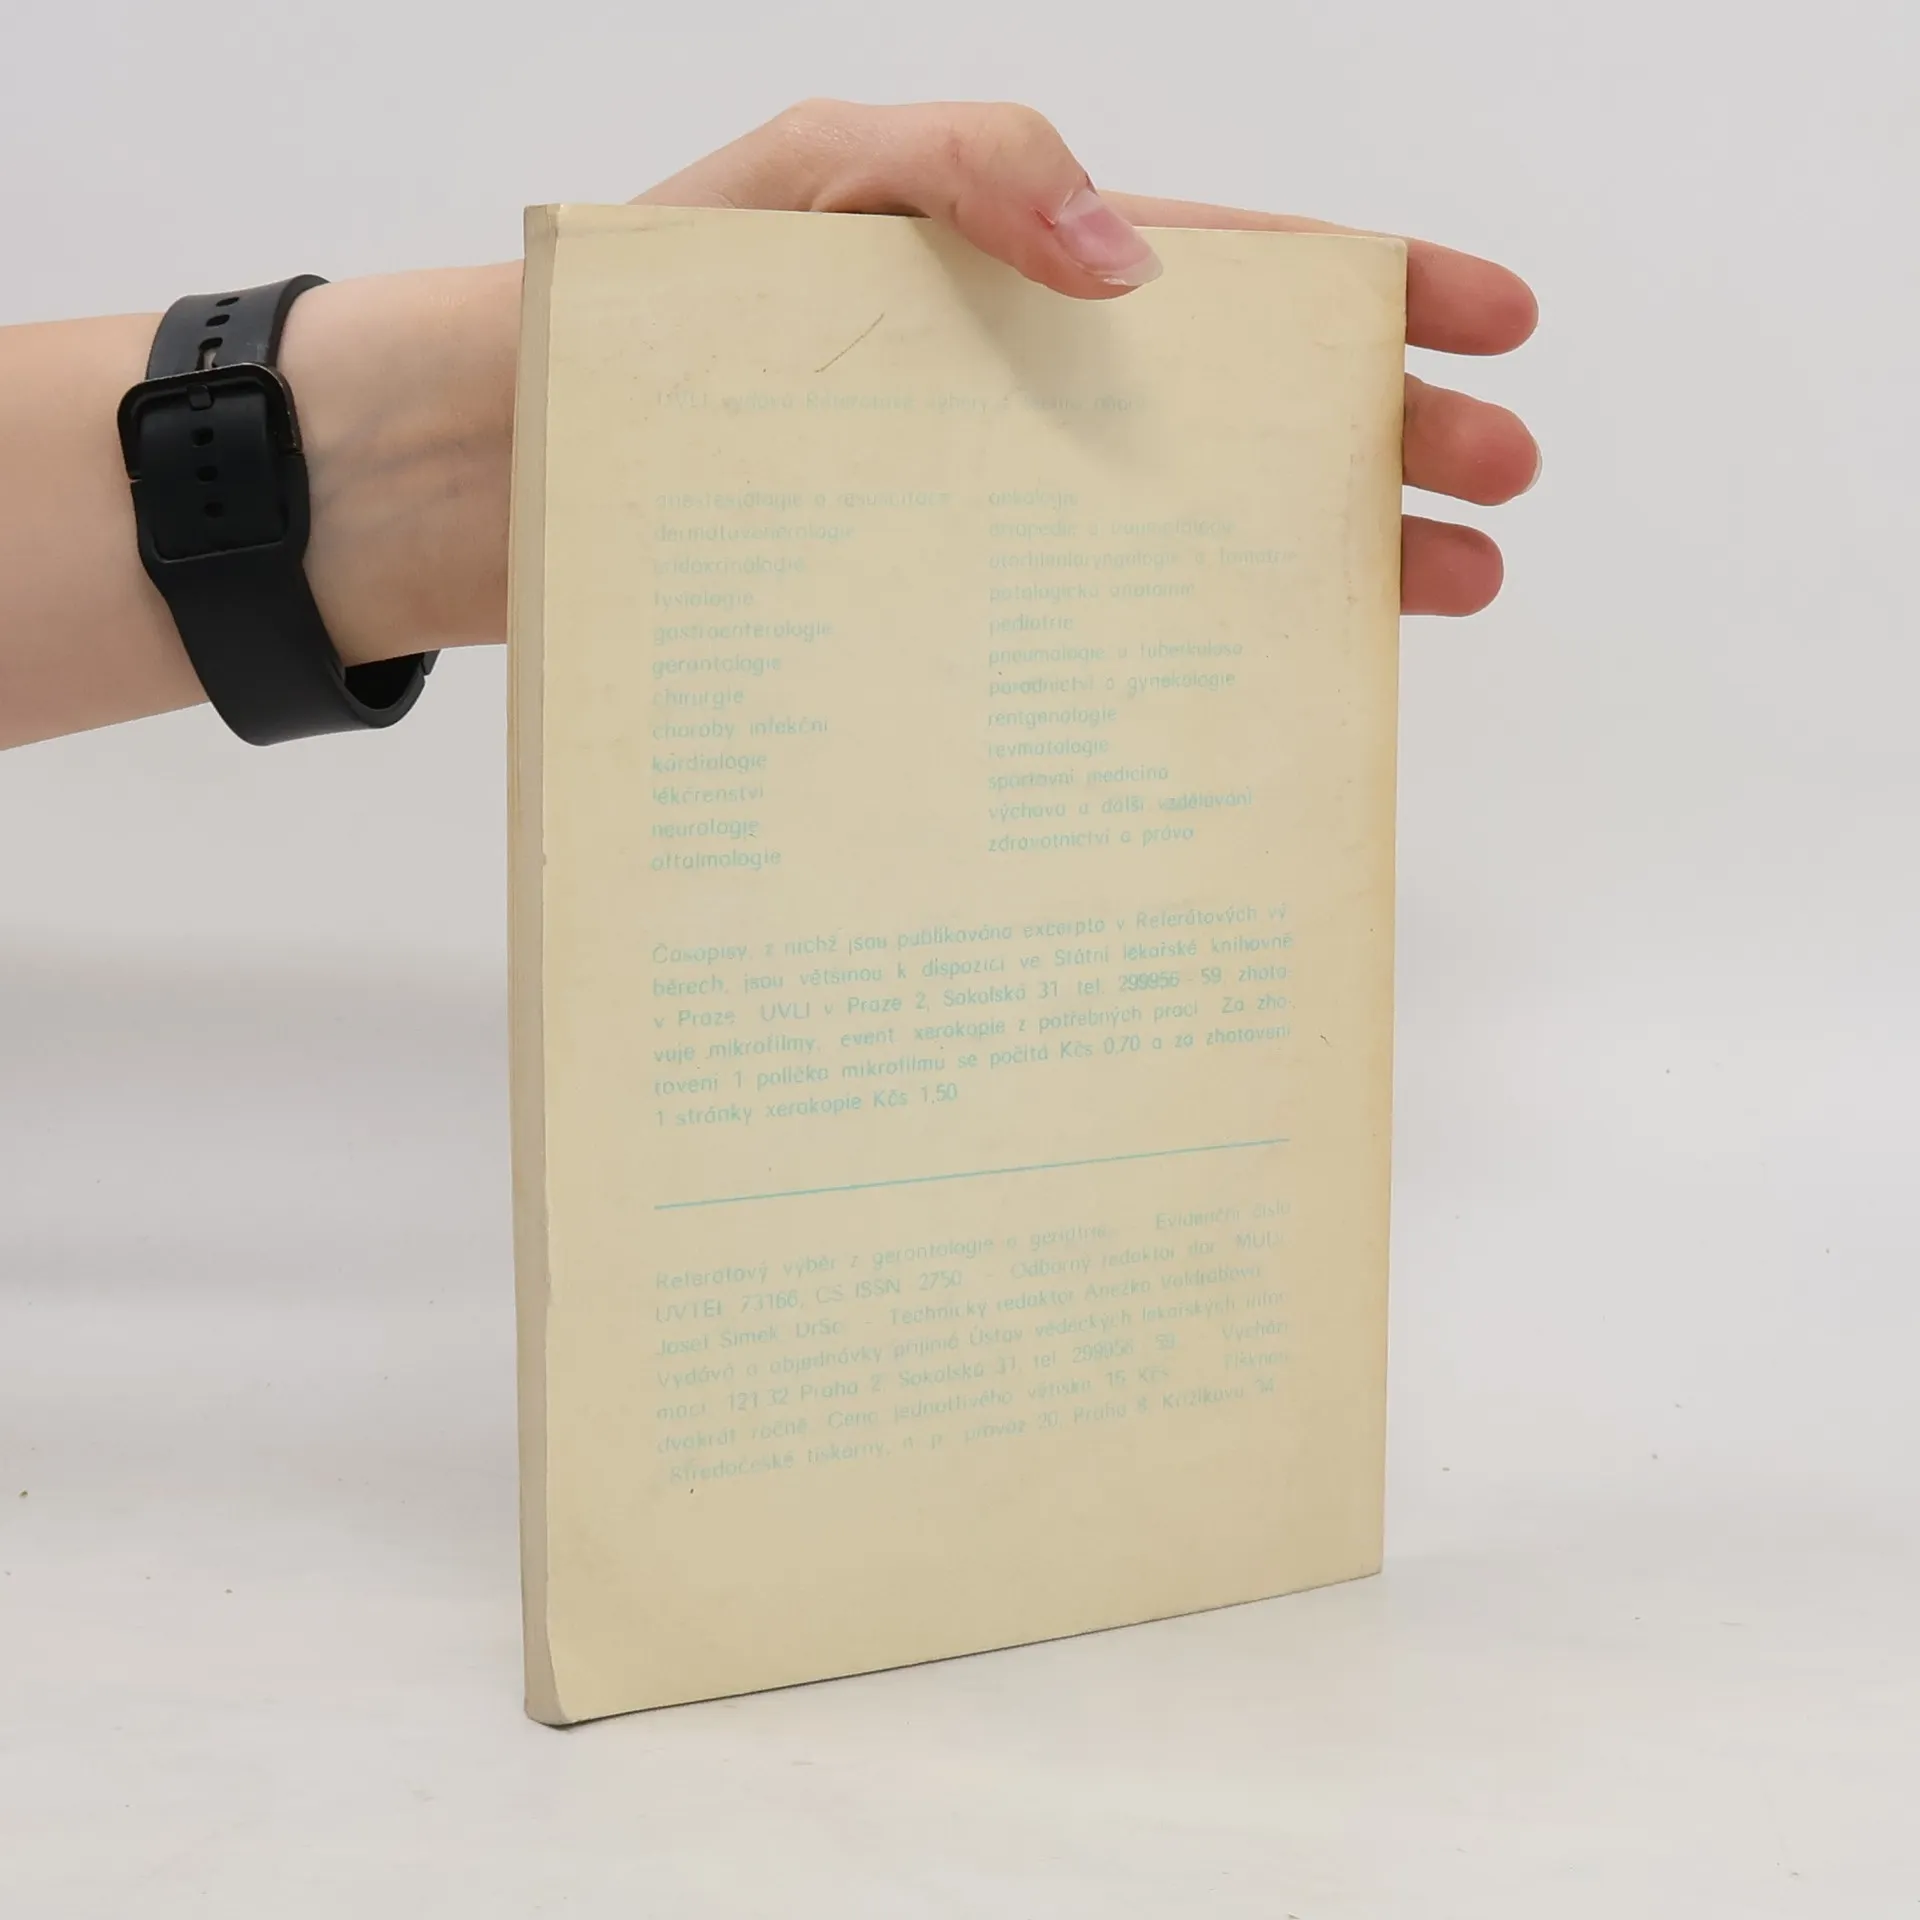 ÚVLI vydává Referátové výběry z
anesteziologie a resuscitace
dermatovenerologie
endokrinologie
fysiologie
gastroenterologie
gerontologie
chirurgie
choroby infekční
kardiologie
lékárenství
neurologie
oftalmologie
onkologie
ortopedie a traumatologie
otorhinolaryngologie a foniatrie
patologická anatomie
pediatrie
pneumologie a tuberkulosa
porodnictví a gynekologie
rentgenologie
revmatologie
sportovní medicina
výchova a další vzdělávání
zdravotnictví a právo
Časopisy, z nichž jsou publikována excerpta v Referátových vý
běrech, jsou většinou k dispozici ve Státní lékařské knihovně
v Praze ÚVLI v Praze 2, Sokolská 31 tel. 299956 - 59 zhoto-
vuje mikrofilmy, event xerokopie z potřebných prací Za zho-
tovení 1 políčka mikrofilmu se počítá Kčs 0,70 a za zhotovení
1 stránky xerokopie Kčs 1,50
Referátový výběr z gerontologie a geriatrie, Evidenční číslo
ÚVTEI 73166, ČS ISSN 2750 - Odborný redaktor
Josef Šimek DrSc - Technický redaktor Anežka
Vydává a objednávky přijímá Ústav vědeckých lékařských infor-
mací 121 32 Praha 2, Sokolská 31, tel 299956 - 59. Vychází
dvakrát ročně Cena jednotlivého výtisku 15 Kčs
Středočeské tiskárny, n. p. provoz 20, Praha 8, Křižíkova